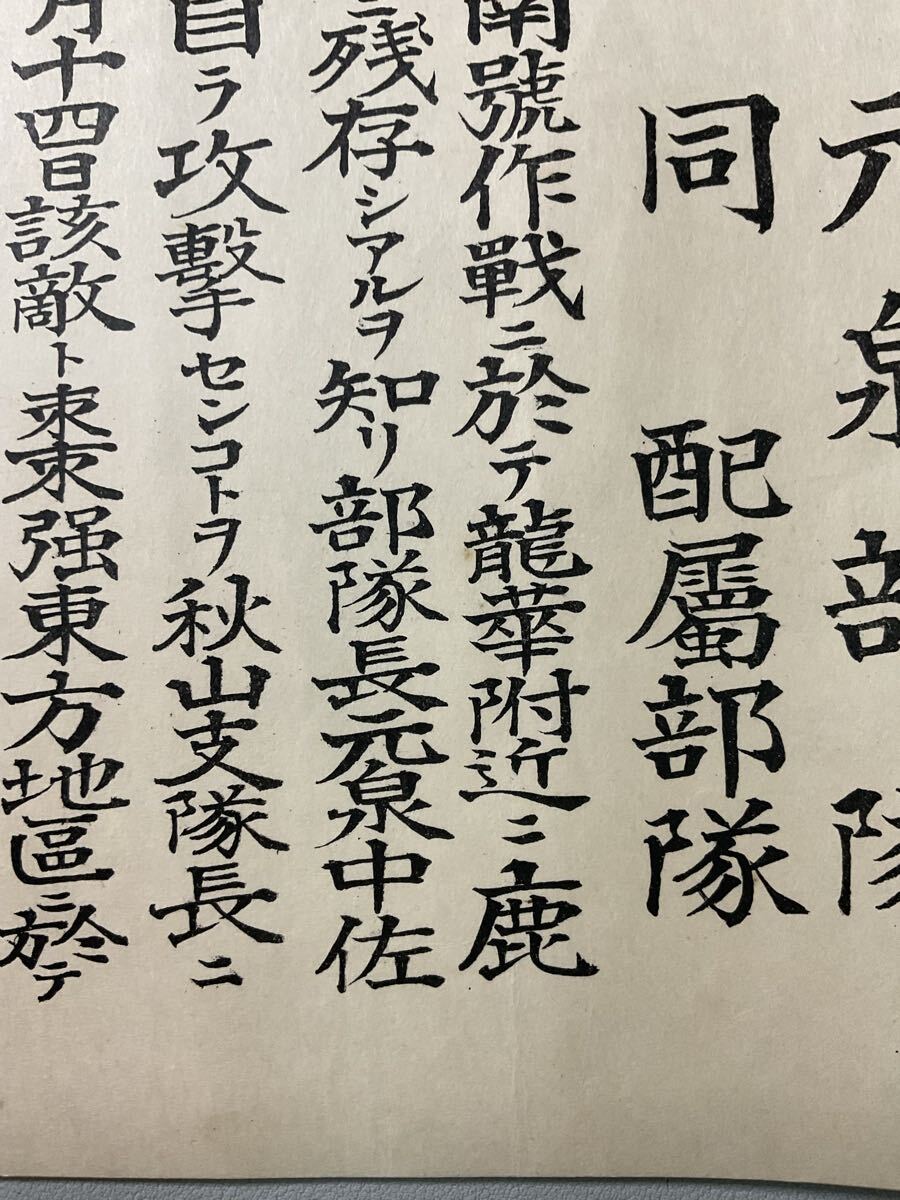 元泉部隊
同 配屬部隊
南號作戰ニ於テ龍華附近ニ鹿
ニ残存シアルヲ知リ部隊長元泉中佐
自ラ攻擊センコトヲ秋山支隊長ニ
月十四日該敵ト棗强東方地區ニ於テ